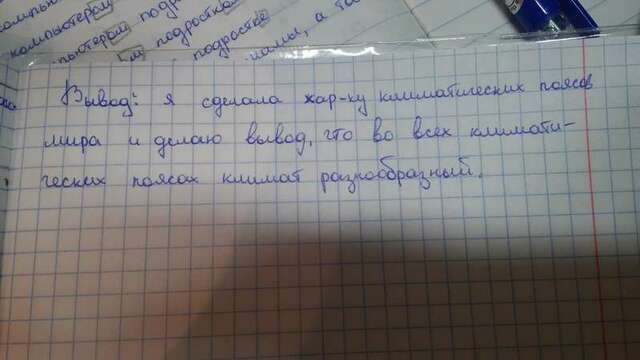 Вывод: я сделала хар-ку климатических поясов
мира и делаю вывод, что во всех климати-
ческих поясах климат разнообразный.
компьютером
подростка
подростке
мамы, а